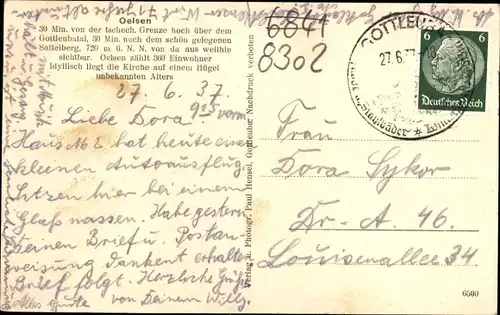 Oelsen
30 Min. von der tschech. Grenze hoch über dem
Gottleubatal, 30 Min. nach dem schön gelegenen
Sattelberg, 720 m ü. N. N. von da aus weithin
sichtbar. Oelsen zählt 360 Einwohner
Idyllisch liegt die Kirche auf einem Hügel
unbekannten Alters
27. 6. 37.
9:15 vorm
Liebe Dora
Haus No 2 hat heute einen
kleinen Autoausflug
Sitzen hier bei einem
Glas nassen. Habe gestern
Deinen Brief u. Postan-
weisung dankend erhalten
Brief folgt. Herzliche Grüße
Alles gute von Deinem Willy
Verlag u. Photogr. Paul Hensel, Gottleuba Nachdruck verboten
6841
8302
GOTTLEUBA
27.6.37
6
6
Deutsches Reich
Frau
Dora Sykor
Dr.-A. 46.
Louisenallee 34
6500